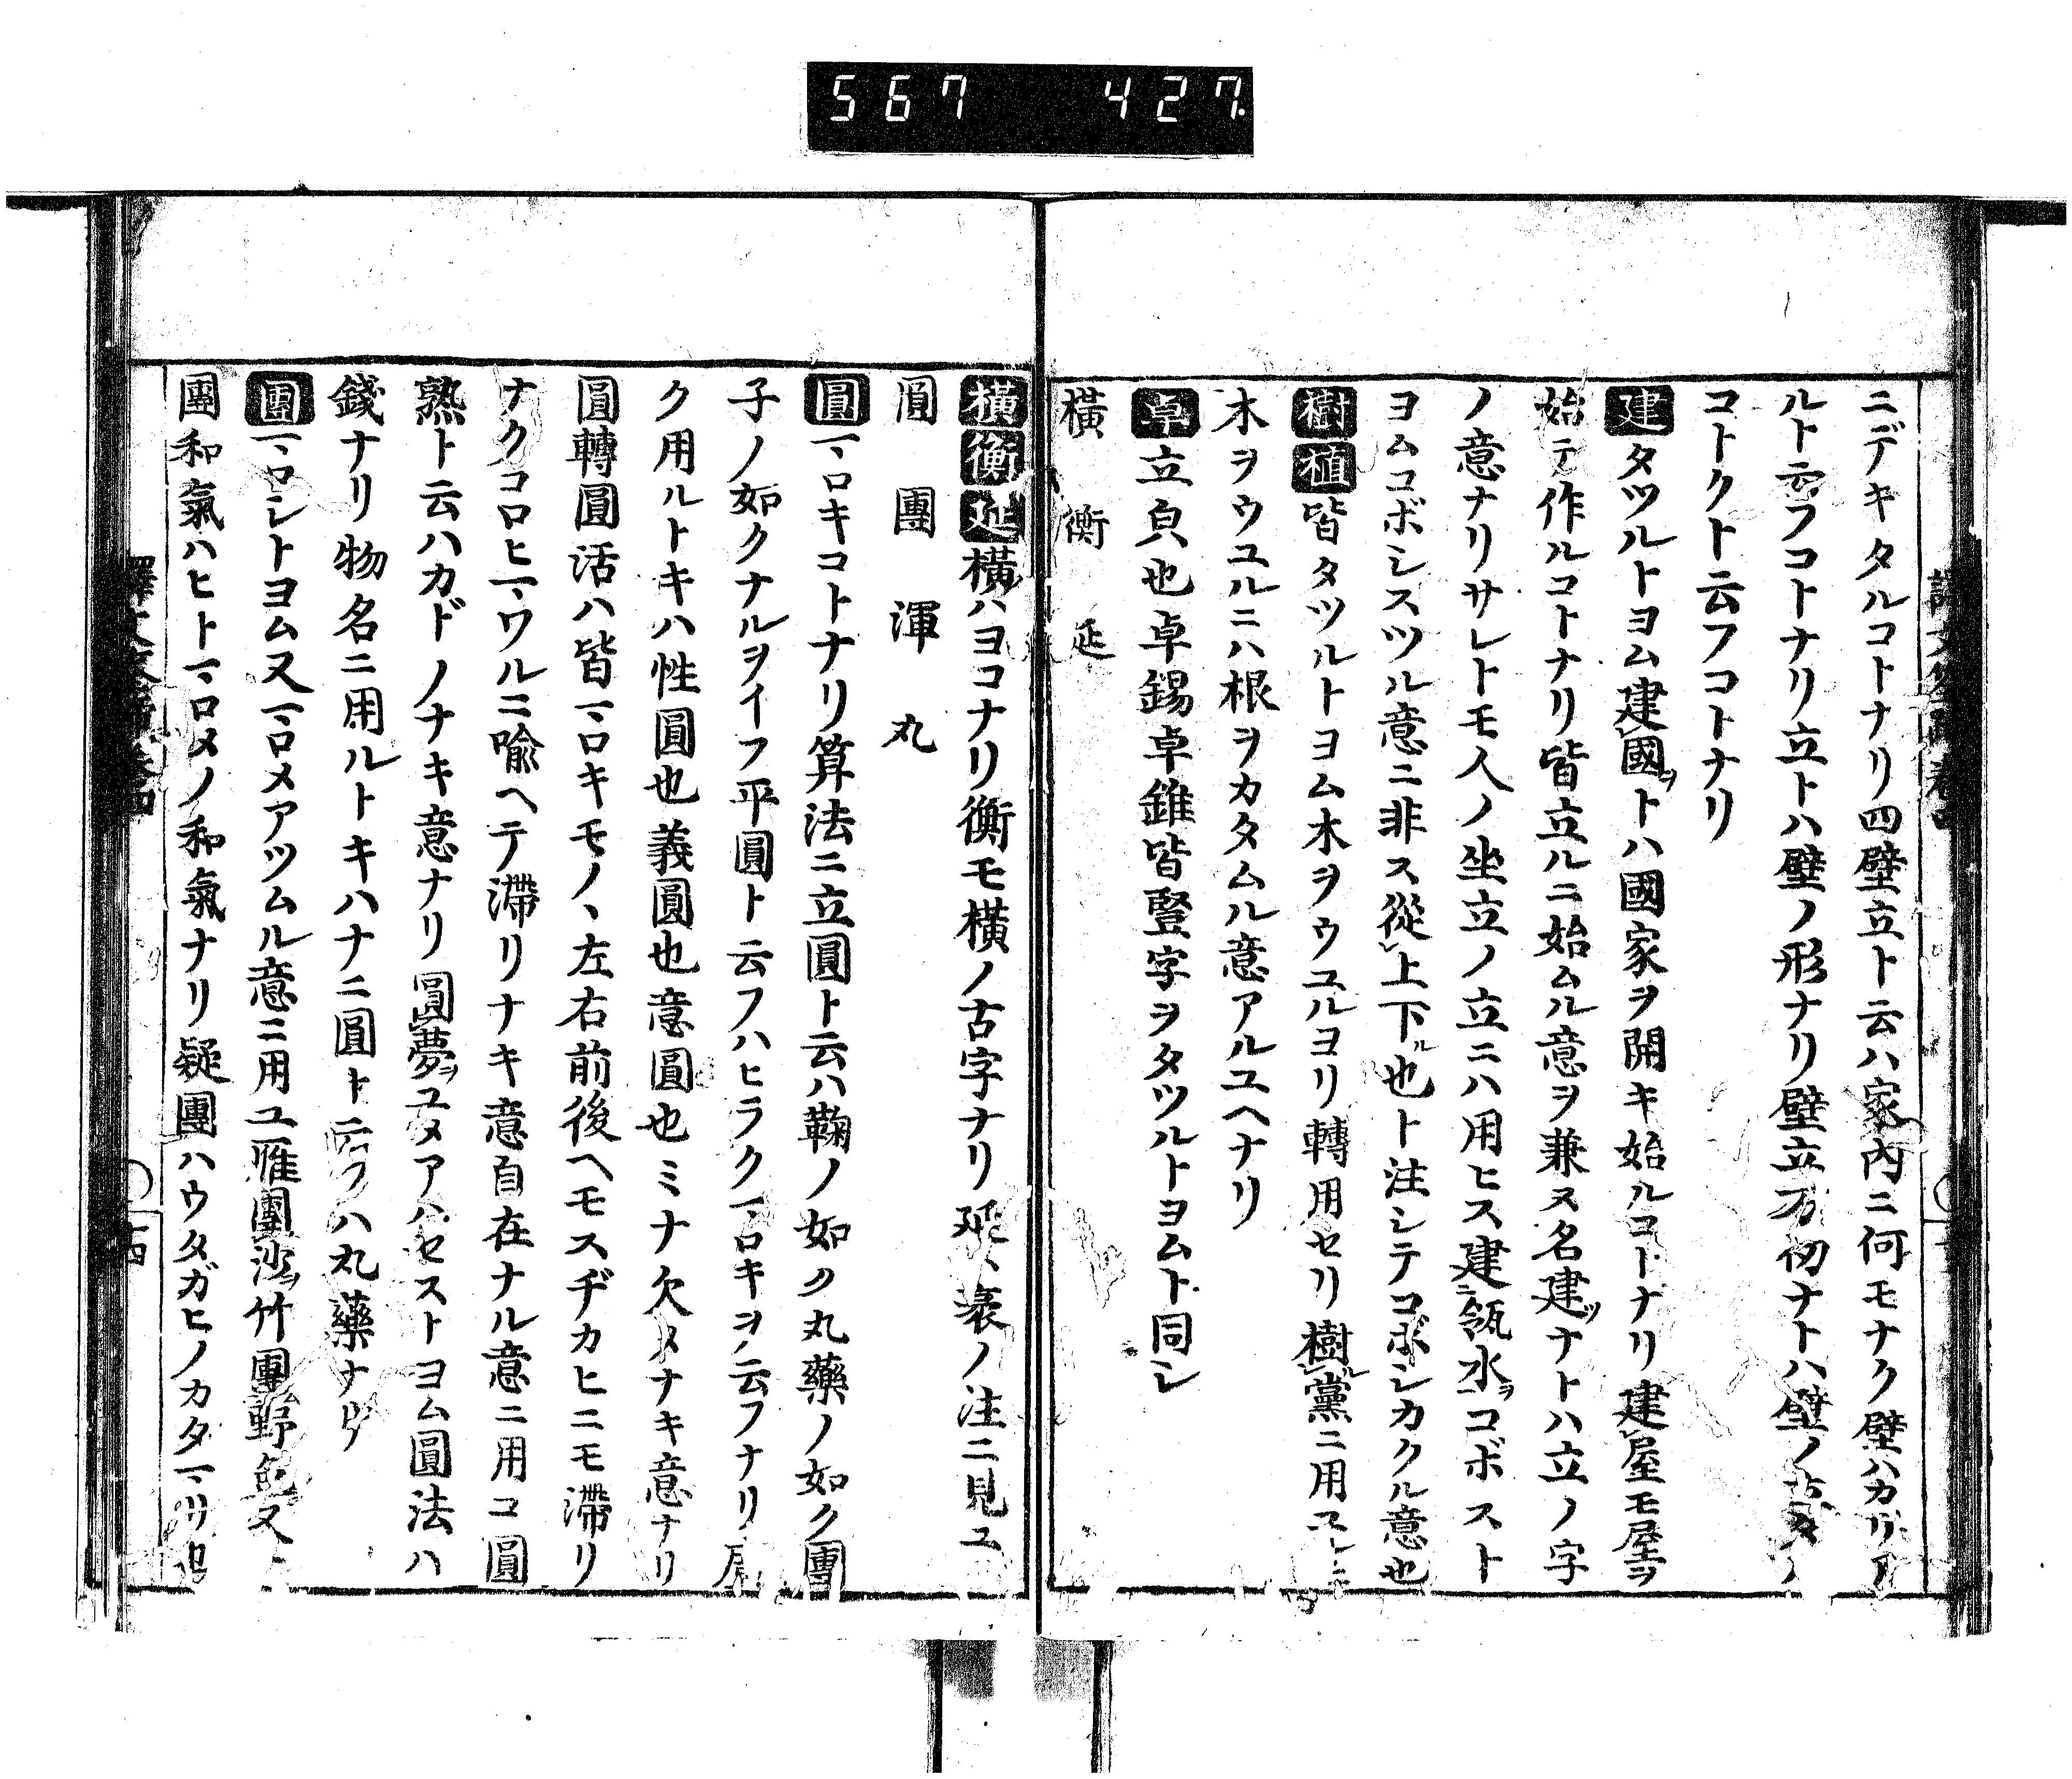 567 427
ニデキタルコトナリ四壁立ト云ハ家內ニ何モナク壁ハカリア
ルト云フコトナリ立トハ壁ノ形ナリ壁立万仞ナトハ壁ノ
コトクト云フコトナリ
建タツルトヨム建國ヲトハ國家ヲ開キ始ルコトナリ建屋モ屋ヲ
始テ作ルコトナリ皆立ルニ始ムル意ヲ兼ヌ名建ツナトハ立ノ字
ノ意ナリサレトモ人ノ坐立ノ立ニハ用ヒス建瓴水ヲコボスト
ヨムコボシスツル意ニ非ス從上下ル也ト注シテコボシカクル意也
樹植皆タツルトヨム木ヲウユルヨリ轉用セリ樹黨ニ用
木ヲウユルニハ根ヲカタムル意アルユヘナリ
卓立皃也卓錫卓錐皆豎字ヲタツルトヨムト同シ
橫 衡 延
橫衡延橫ハヨコナリ衡モ橫ノ古字ナリ延ハ袤ノ注ニ見ユ
圓 團 渾 丸
圓マロキコトナリ算法ニ立圓ト云ハ鞠ノ如ク丸藥ノ如ク團
子ノ如クナルヲイフ平圓ト云フハヒラクマロキヲ云フナリ
ク用ルトキハ性圓也義圓也意圓也ミナ欠メナキ意ナリ
圓轉圓活ハ皆マロキモノヽ左右前後ヘモスヂカヒニモ滯リ
ナクコロヒマワルニ喩ヘテ滯リナキ意自在ナル意ニ用ユ圓
熟ト云ハカドノナキ意ナリ圓夢ヲユメアハセストヨム圓法ハ
錢ナリ物名ニ用ルトキハナニ圓ト云フハ丸藥ナリ
團マロシトヨム又マロメアツムル意ニ用ユ雁團沙竹團野色又
團和氣ハヒトマロメノ和氣ナリ疑團ハウタガヒノカタマリ也